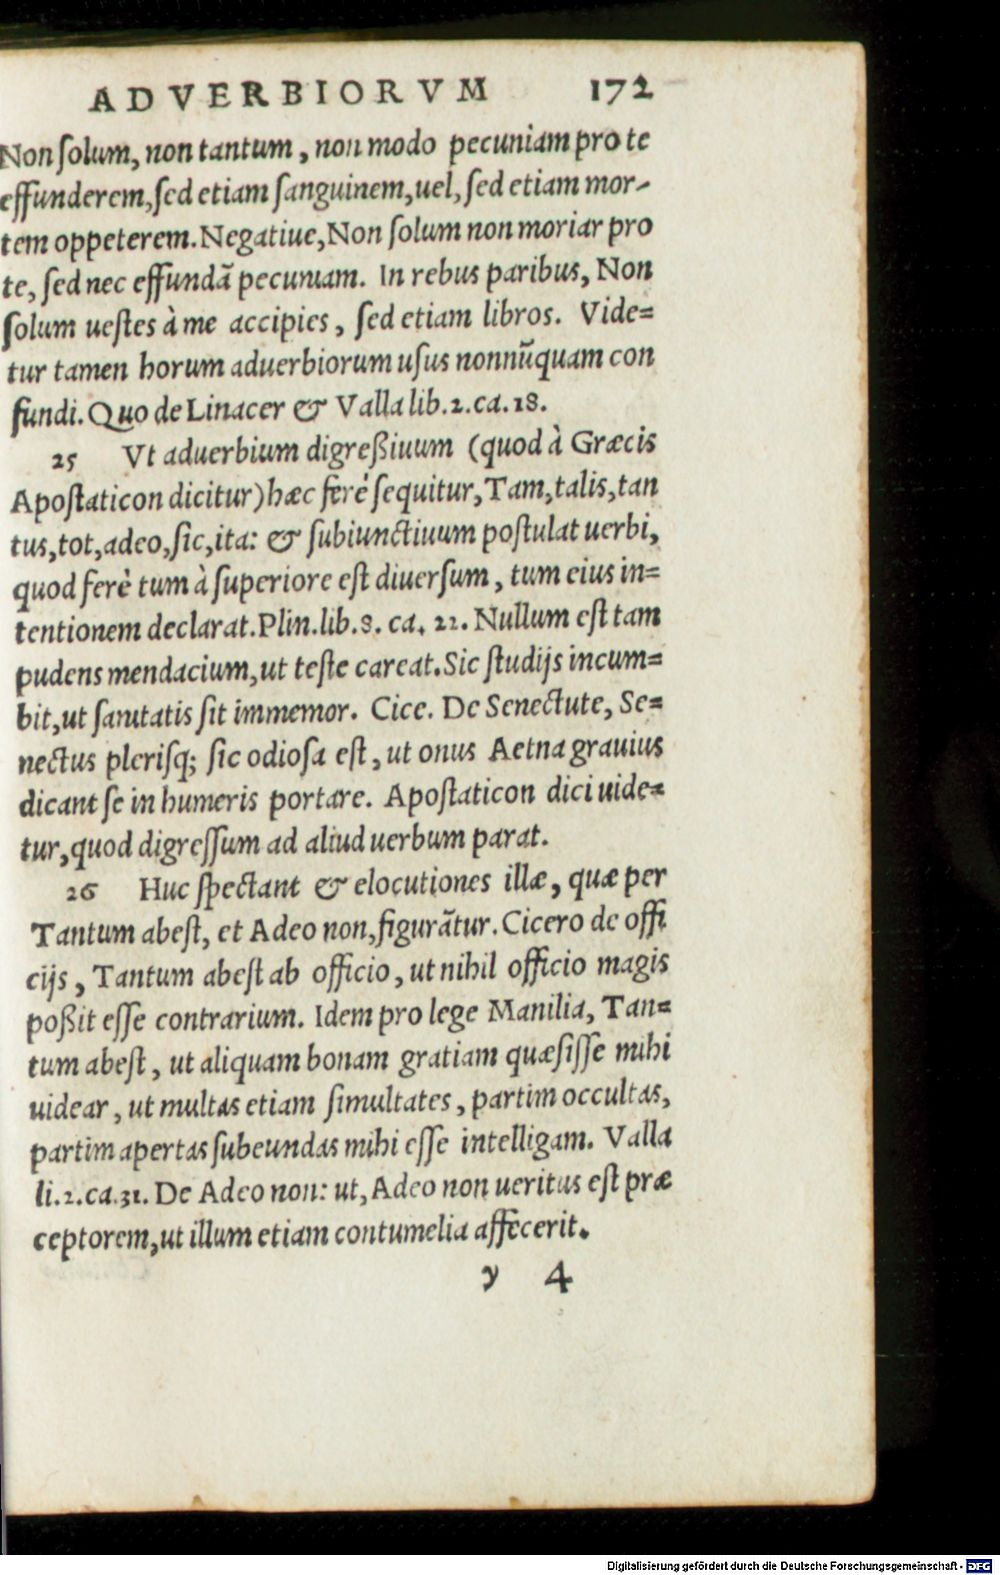 ADVERBIORVM 172
Non ſolum, non tantum, non modo pecuniam pro te
effunderem, ſed etiam ſanguinem, uel, ſed etiam mor-
tem oppeterem. Negatiue, Non ſolum non moriar pro
te, ſed nec effundã pecuniam. In rebus paribus, Non
ſolum ueſtes à me accipies, ſed etiam libros. Vide=
tur tamen horum aduerbiorum uſus nonnũquam con
fundi. Quo de Linacer & Valla lib.2.ca.18.
25 Vt aduerbium digreßiuum (quod à Græcis
Apoſtaticon dicitur) hæc ferè ſequitur, Tam, talis, tan
tus, tot, adeo, ſic, ita: & ſubiunctiuum poſtulat uerbi,
quod ferè tum à ſuperiore eſt diuerſum, tum eius in=
tentionem declarat. Plin.lib.8. ca. 22. Nullum eſt tam
pudens mendacium, ut teſte careat. Sic ſtudijs incum=
bit, ut ſanitatis ſit immemor. Cice. De Senectute, Se=
nectus pleriſq; ſic odioſa eſt, ut onus Aetna grauius
dicant ſe in humeris portare. Apoſtaticon dici uide=
tur, quod digreſſum ad aliud uerbum parat.
26 Huc ſpectant & elocutiones illæ, quæ per
Tantum abeſt, et Adeo non, figurãtur. Cicero de offi
cijs, Tantum abeſt ab officio, ut nihil officio magis
poßit eſſe contrarium. Idem pro lege Manilia, Tan=
tum abeſt, ut aliquam bonam gratiam quæſiſſe mihi
uidear, ut multas etiam ſimultates, partim occultas,
partim apertas ſubeundas mihi eſſe intelligam. Valla
li.2.ca.31. De Adeo non: ut, Adeo non ueritus eſt præ
ceptorem, ut illum etiam contumelia affecerit.
y 4
Digitalisierung gefördert durch die Deutsche Forschungsgemeinschaft - DFG